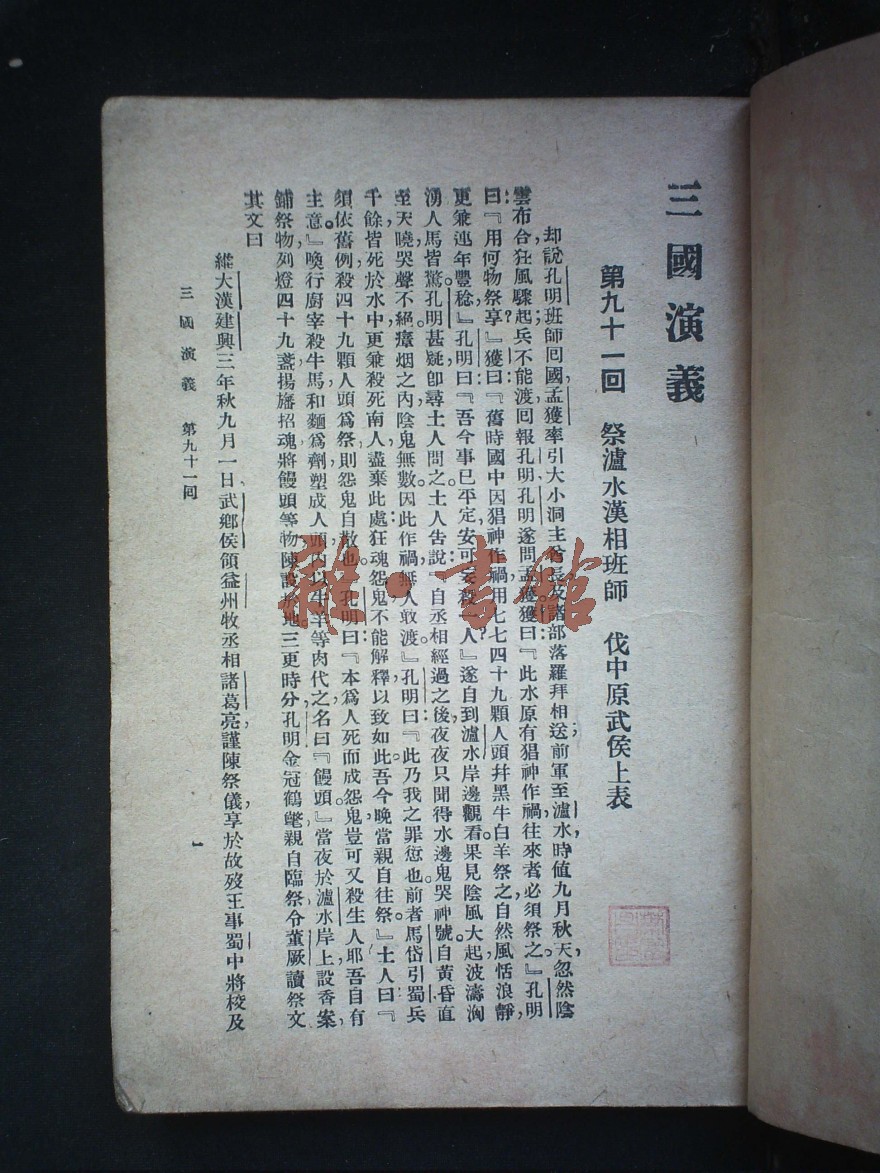 三國演義
第九十一回　祭瀘水漢相班師　伐中原武侯上表
却說孔明班師回國，孟獲率引大小洞主酋長及諸部落羅拜相送前軍至瀘水，時值九月秋天，忽然陰
雲布合狂風驟起；兵不能渡，回報孔明孔明遂問孟獲獲曰：『此水原有猖神作禍往來者必須祭之。』孔明
曰：『用何物祭享？』獲曰：『舊時國中因猖神作禍，用七七四十九顆人頭幷黑牛白羊祭之，自然風恬浪靜，
更兼連年豐稔。』孔明曰：『吾今事已平定，安可妄殺一人？』遂自到瀘水岸邊觀看。果見陰風大起，波濤洶
湧，人馬皆驚。孔明甚疑，卽尋土人問之。土人告說：『自丞相經過之後，夜夜只聞得水邊鬼哭神號。自黃昏直
至天曉，哭聲不絕。瘴烟之內，陰鬼無數。因此作禍，無人敢渡。』孔明曰：『此乃我之罪愆也。前者馬岱引蜀兵
千餘，皆死於水中；更兼殺死南人，盡棄此處：狂魂怨鬼，不能解釋，以致如此。吾今晚當親自往祭。』土人曰：『
須依舊例，殺四十九顆人頭爲祭，則怨鬼自散也。』孔明曰：『本爲人死而成怨鬼，豈可又殺生人耶？吾自有
主意。』喚行廚宰殺牛馬；和麵爲劑，塑成人頭，內以牛羊等肉代之，名曰『饅頭』。當夜於瀘水岸上，設香案，
鋪祭物，列燈四十九盞，揚旛招魂；將饅頭等物，陳設於地。三更時分，孔明金冠鶴氅，親自臨祭，令董厥讀祭文。
其文曰
維大漢建興三年秋九月一日，武鄉侯領益州牧丞相諸葛亮，謹陳祭儀，享於故歿王事蜀中將校及
三國演義　第九十一回
一
雜·書館